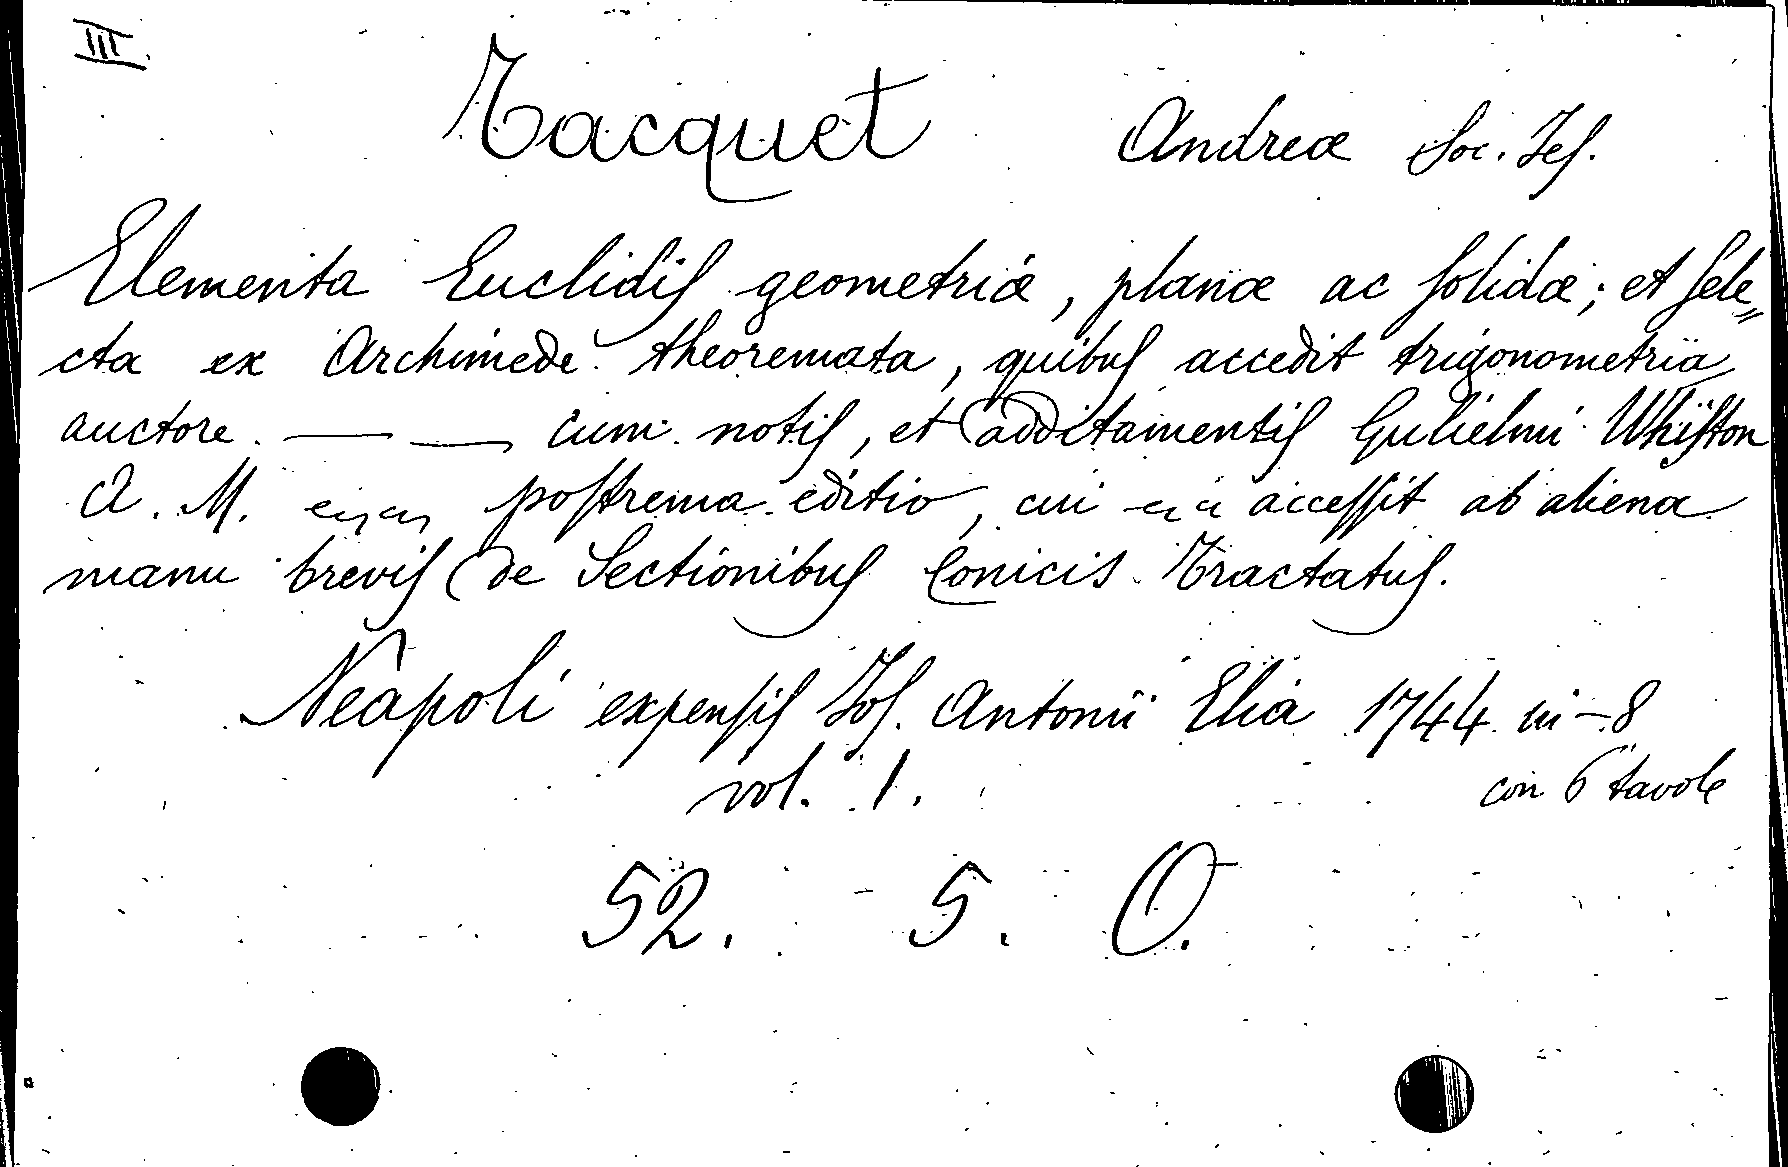 III.
Tacquet Andreæ Soc. Jes.
Elementa Euclidis geometriæ, planæ ac solidæ; et sele„
cta ex Archimede theoremata, quibus accedit trigonometria
auctore. — — cum notis, et additamentis Gulielmi Whiston
A. M. postrema editio, cui accessit ab aliena
manu brevis de Sectionibus Conicis Tractatus.
Neapoli expensis Jos. Antonii Elia 1744 in-8
vol. 1. con 6 tavole
52. 5. O.